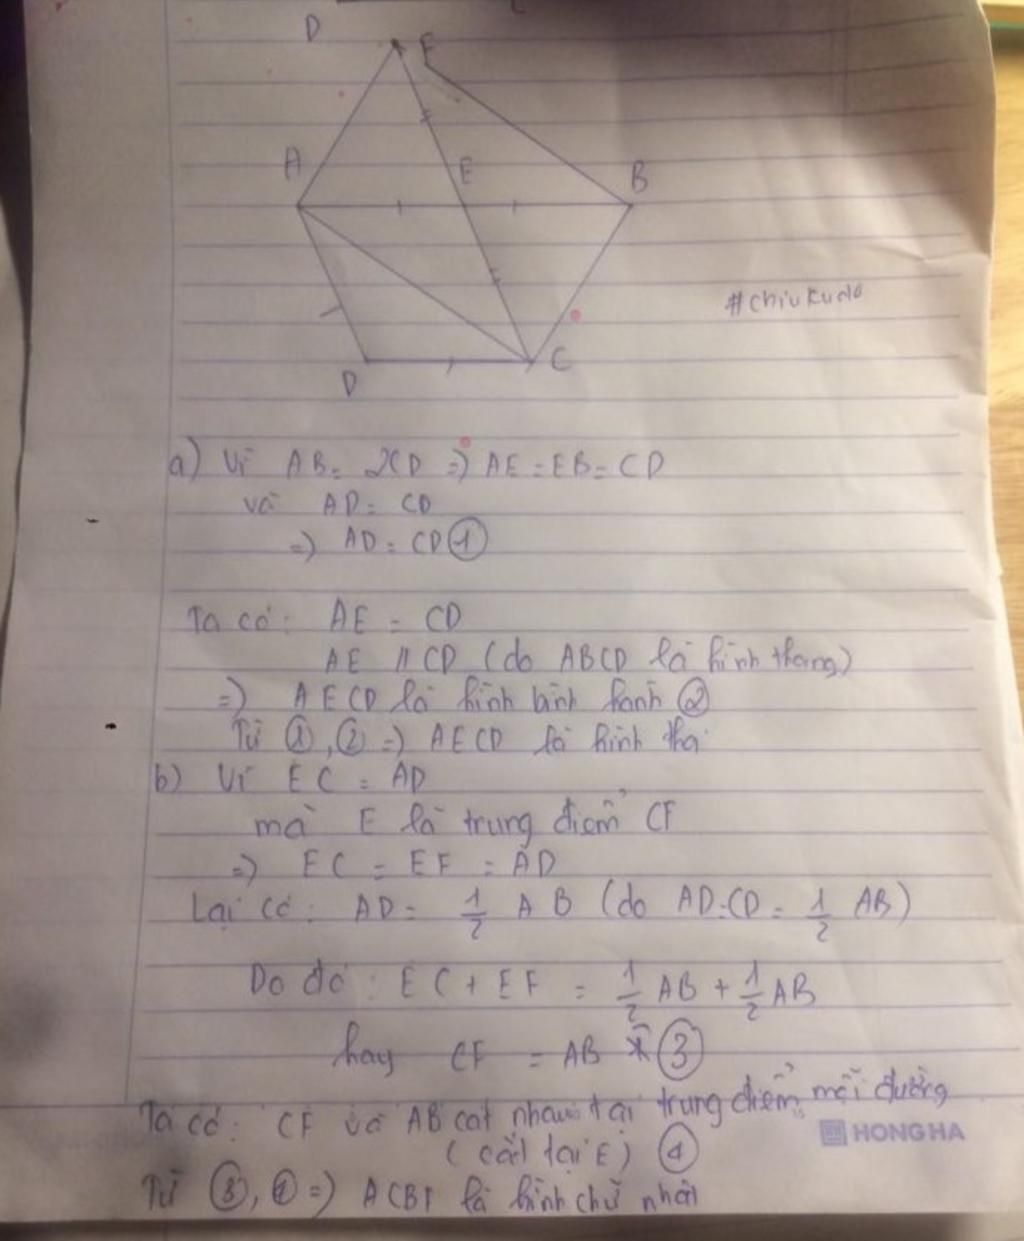 D
F
A
E
B
#chiukudo
D
C
a) Vì AB = 2CD => AE = EB = CD
và AD = CD
=> AD = CD ①
Ta có: AE = CD
AE // CD (do ABCD là hình thang)
=> AECD là hình bình hành ②
Từ ①, ② => AECD là hình thoi
b) Vì EC = AD
mà E là trung điểm CF
=> EC = EF = AD
Lại có: AD = 1/2 AB (do AD=CD = 1/2 AB)
Do đó: EC + EF = 1/2 AB + 1/2 AB
hay CF = AB ③
Ta có: CF và AB cắt nhau tại trung điểm mỗi đường
HONG HA
(cắt tại E) ④
Từ ③, ④ => ACBF là hình chữ nhật